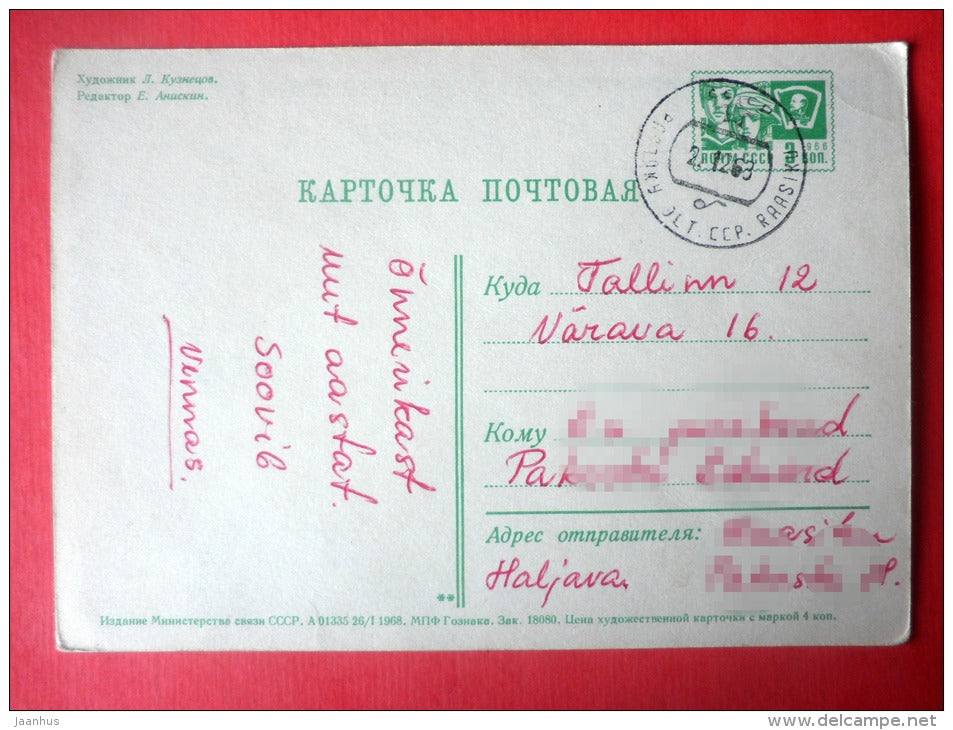 Художник Л. Кузнецов.
Редактор Е. Анискин.
КАРТОЧКА ПОЧТОВАЯ
СССР
ПОЧТА СССР
1966
3 КОП.
CCP. RAASIKU
Õnnerikast
uut aastat.
Soovib
Vennas.
Куда Tallinn 12
Värava 16.
Кому
Адрес отправителя:
Haljava.
**
Издание Министерства связи СССР. А 01335 26/I 1968. МПФ Гознака. Зак. 18080. Цена художественной карточки с маркой 4 коп.
Jaanhus
www.delcampe.net